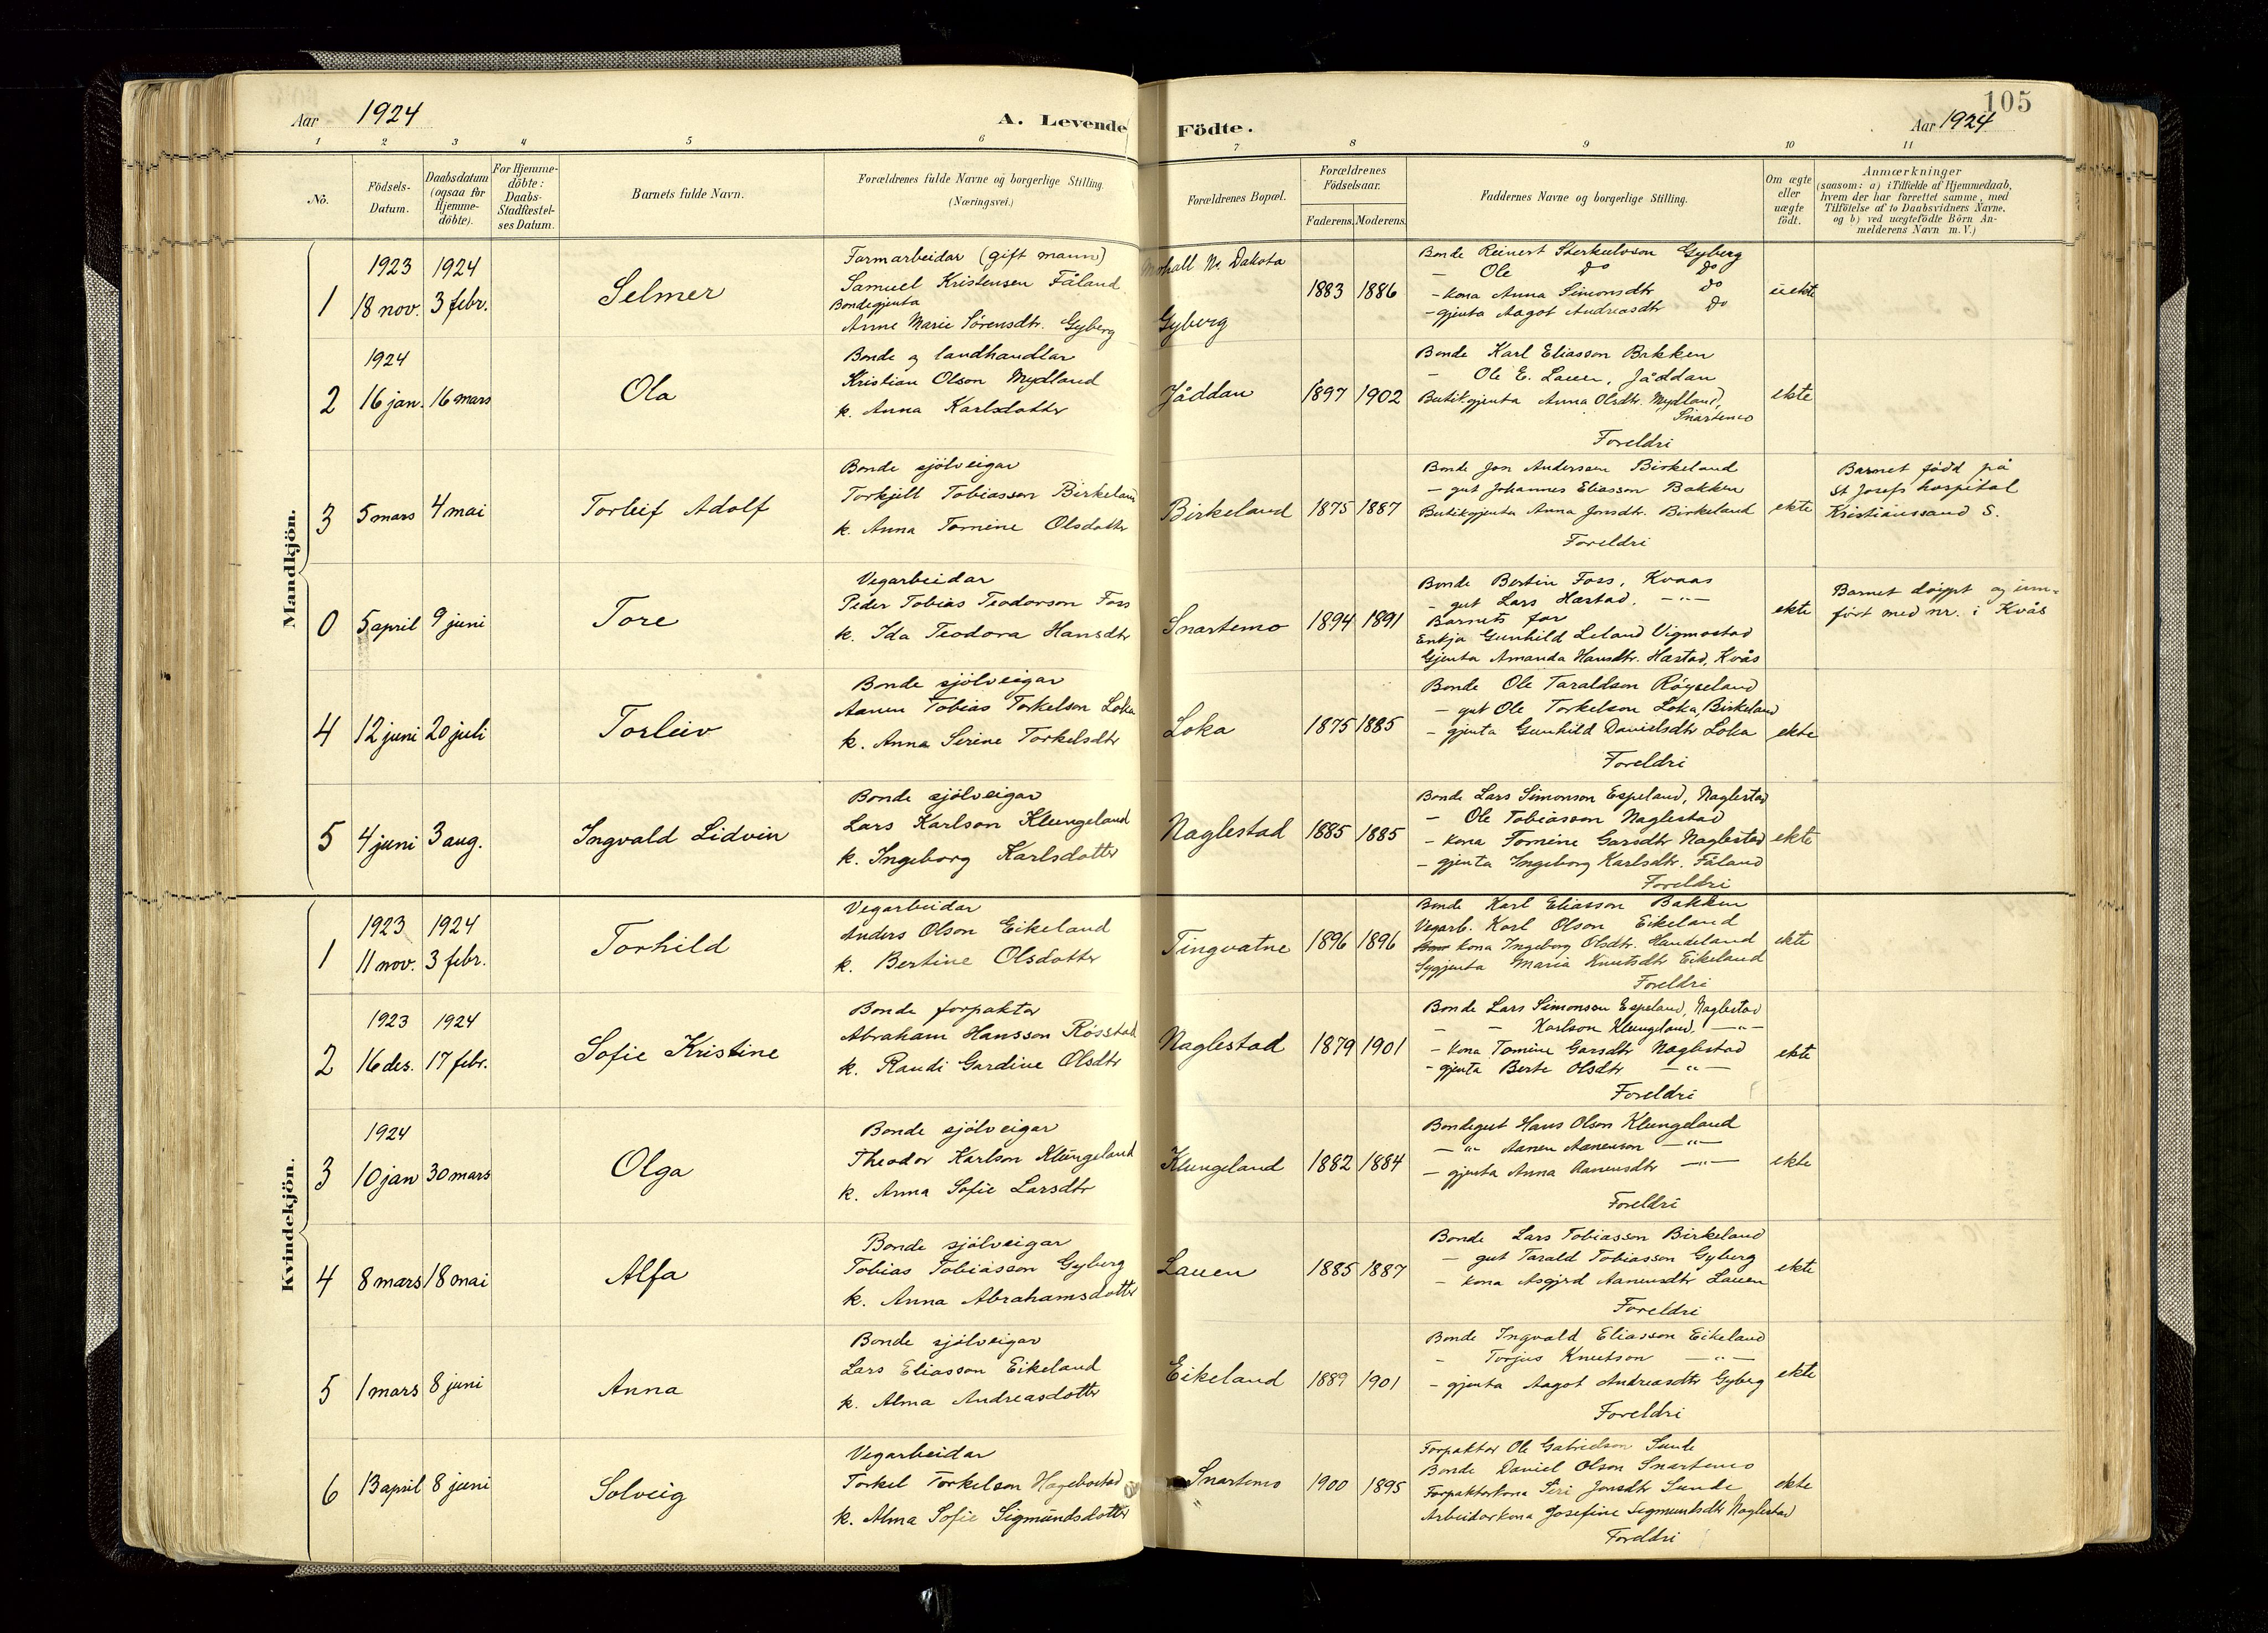 105
Aar 1924
A. Levende Födte.
Aar 1924
1 2 3 4 5 6 7 8 9 10 11
No.
Födsels-
Datum.
Daabsdatum
(ogsaa for
Hjemme-
döbte).
For Hjemme-
döbte:
Daabs-
Stadfæstel-
ses Datum.
Barnets fulde Navn.
Forældrenes fulde Navne og borgerlige Stilling.
(Næringsvei.)
Forældrenes Bopæl.
Forældrenes
Födselsaar.
Faderens. Moderens.
Faddernes Navne og borgerlige Stilling.
Om ægte
eller
uægte
födt.
Anmærkninger
(saasom: a) i Tilfælde af Hjemmedaab,
hvem der har forrettet samme, med
Tilföielse af to Daabsvidners Navne,
og b) ved uægtefödte Börn An-
melderens Navn m. V.)
Mandkjön.
1
1923 1924
18 nov. 3 febr.
Selmer
Farmarbeidar (gift mann)
Samuel Kristensen Fåland
Bondegjenta
Anne Marie Sørensdtr. Gyberg
N. Dakota
Gyberg
1883 1886
Bonde Reinert Sterkulvson Gyberg
- Ole do do
- kona Anna Simonsdtr do
- gjenta Aagot Andreasdtr do
uekte
2
1924
16 jan. 16 mars
Ola
Bonde og landhandlar
Kristian Olson Mydland
k. Anna Karlsdotter
Jåddan
1897 1902
Bonde Karl Eliasson Bakken
- Ole E. Lauen, Jåddan
Butikgjenta Anna Olsdtr. Mydland,
Snartemo
Foreldri
ekte
3
5 mars 4 mai
Torleif Adolf
Bonde sjölveigar
Torkjell Tobiasson Birkeland
k. Anna Tomine Olsdotter
Birkeland
1875 1887
Bonde Jon Andersson Birkeland
- gut Johannes Eliasson Bakken
Butikgjenta Anna Jonsdtr. Birkeland
Foreldri
ekte
Barnet född på
St Josefs hospital
Kristianssand S.
0
5 april 9 juni
Tore
Vegarbeidar
Peder Tobias Teodorson Foss
k. Ida Teodora Hansdtr
Snartemo
1894 1891
Bonde Bertin Foss, Kvaas
- gut Lars Hæstad, -"-
Barnets far
Enkja Gunhild Leland Vigmostad
Gjenta Amanda Hansdtr. Hæstad, Kvås
ekte
Barnet döypt og inn-
fört med nr. i Kvås
4
12 juni 20 juli
Torleiv
Bonde sjölveigar
Aanen Tobias Torkelson Loka
k. Anna Serine Torkelsdtr
Loka
1875 1885
Bonde Ole Taraldson Röyseland
- gut Ole Torkelson Loka, Birkeland
- gjenta Gunhild Danielsdtr Loka
Foreldri
ekte
5
4 juni 3 aug.
Ingvald Lidvin
Bonde sjölveigar
Lars Karlson Klungeland
k. Ingeborg Karlsdotter
Naglestad
1885 1885
Bonde Lars Simonson Espeland, Naglestad
- Ole Tobiasson Naglestad
- kona Tomine Garsdtr Naglestad
- gjenta Ingeborg Karlsdtr. Fåland
Foreldri
ekte
Kvindekjön.
1
1923 1924
11 nov. 3 febr.
Torhild
Vegarbeidar
Anders Olson Eikeland
k. Bertine Olsdotter
Tingvatne
1896 1896
Bonde Karl Eliasson Bakken
Vegarb. Karl Olson Eikeland
kona Ingeborg Olsdtr. Handeland
Sygjenta Maria Knutsdtr Eikeland
Foreldri
ekte
2
1923 1924
16 des. 17 febr.
Sofie Kristine
Bonde forpaktar
Abraham Hansson Rösstad
k. Randi Gardine Olsdtr
Naglestad
1879 1901
Bonde Lars Simonson Espeland, Naglestad
- - Karlson Klungeland, -"-
- kona Tomine Garsdtr Naglestad
- gjenta Berte Olsdtr -"-
Foreldri
ekte
3
1924
10 jan 30 mars
Olga
Bonde sjölveigar
Theodor Karlson Klungeland
k. Anna Sofie Larsdtr
Klungeland
1882 1884
Bondegut Hans Olson Klungeland
- " Aanen Aanenson -"-
- gjenta Anna Aanensdtr -"-
Foreldri
ekte
4
8 mars 18 mai
Alfa
Bonde sjölveigar
Tobias Tobiasson Gyberg
k. Anna Abrahamsdotter
Lauen
1885 1887
Bonde Lars Tobiasson Birkeland
- gut Tarald Tobiasson Gyberg
- kona Asgjerd Aanensdtr Lauen
Foreldri
ekte
5
1 mars 8 juni
Anna
Bonde sjölveigar
Lars Eliasson Eikeland
k. Alma Andreasdotter
Eikeland
1889 1901
Bonde Ingvald Eliasson Eikeland
- Torjus Knutson -"-
- gjenta Aagot Andreasdtr Gyberg
Foreldri
ekte
6
13 april 8 juni
Solveig
Vegarbeidar
Torkel Torkelson Hægebostad
k. Alma Sofie Sigmundsdotter
Snartemo
1900 1895
Forpaktar Ole Gabrielson Sunde
Bonde Daniel Olson Snartemo
Forpaktarkona Siri Jonsdtr Sunde
Arbeidarkona Josefine Segmundsdtr Naglestad
Foreldri
ekte